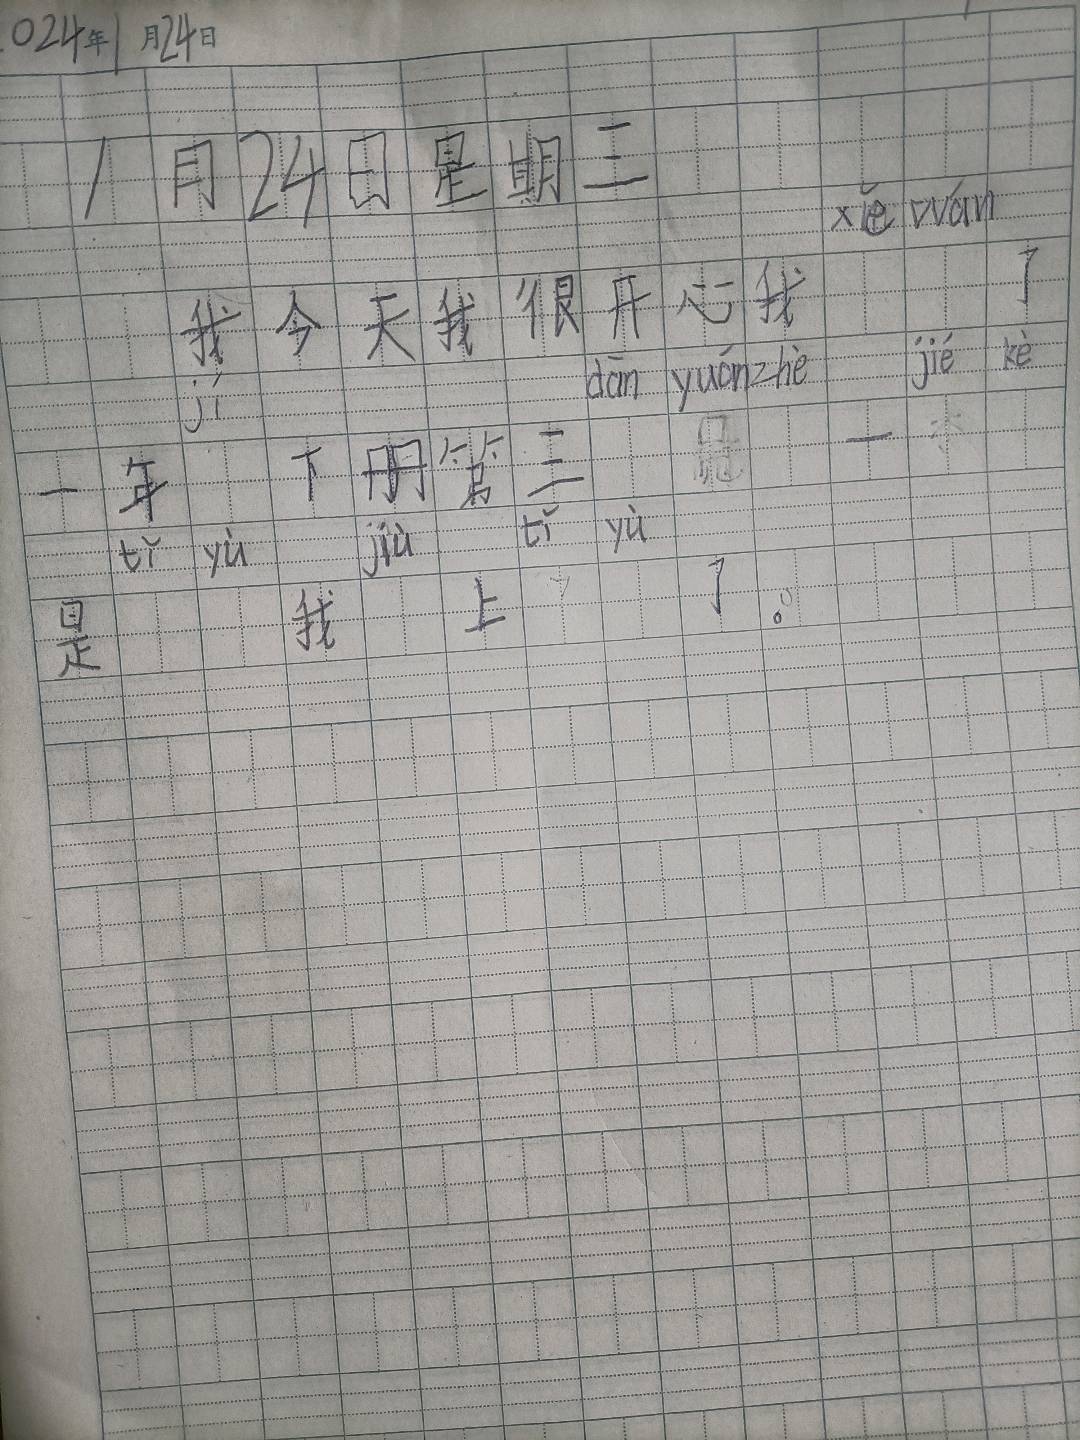 024年1月24日
1月24日是期三
xiě wán
我今天我很开心我 了
jí dān yuán zhè jié kè
一年 下册第三 一
tǐ yù jiù tǐ yù
是 我 上 了。